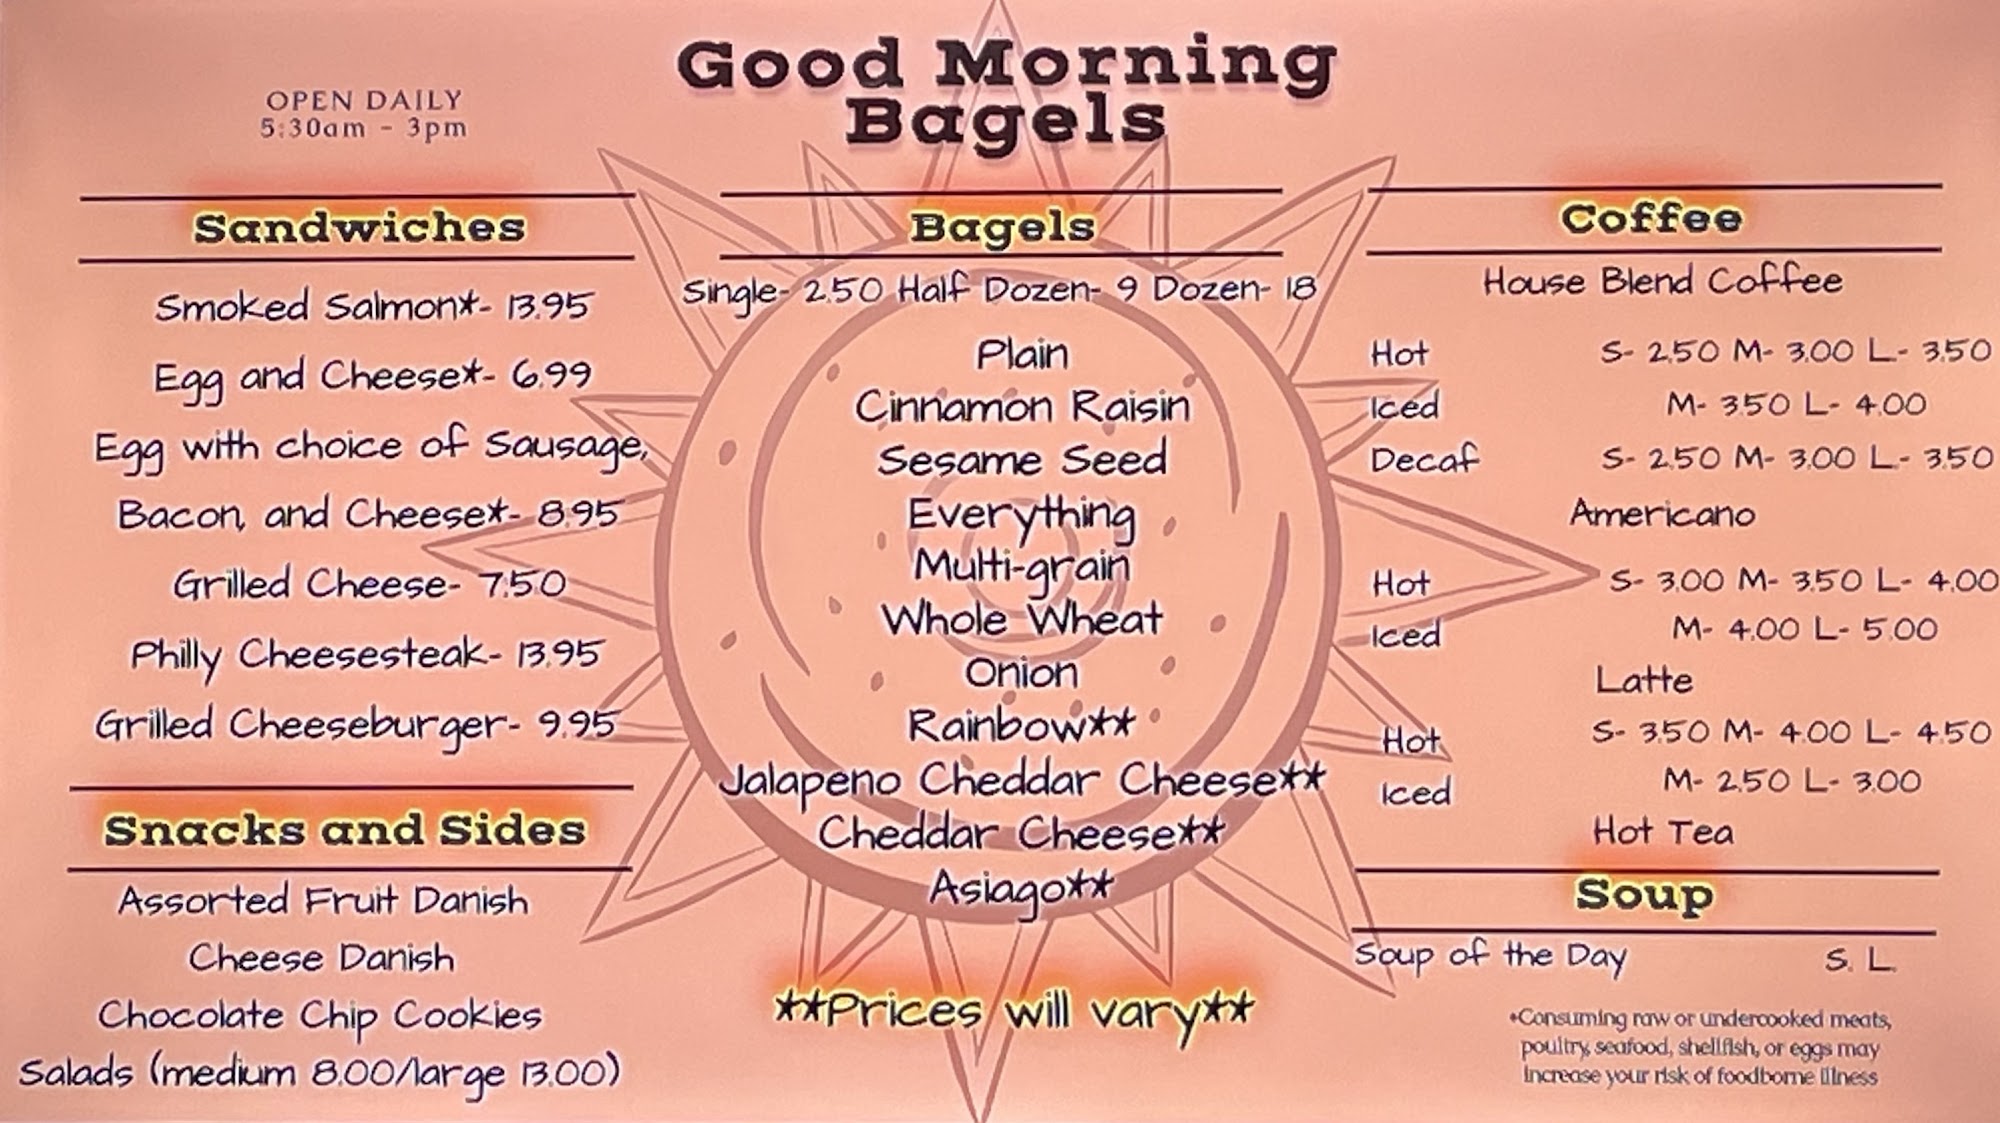 Good Morning
Bagels
OPEN DAILY
5:30am - 3pm
Sandwiches
Smoked Salmon*- 13.95
Egg and Cheese*- 6.99
Egg with choice of Sausage,
Bacon, and Cheese*- 8.95
Grilled Cheese- 7.50
Philly Cheesesteak- 13.95
Grilled Cheeseburger- 9.95
Snacks and Sides
Assorted Fruit Danish
Cheese Danish
Chocolate Chip Cookies
Salads (medium 8.00/large 13.00)
Bagels
Single- 2.50 Half Dozen- 9 Dozen- 18
Plain
Cinnamon Raisin
Sesame Seed
Everything
Multi-grain
Whole Wheat
Onion
Rainbow**
Jalapeno Cheddar Cheese**
Cheddar Cheese**
Asiago**
**Prices will vary**
Coffee
House Blend Coffee
Hot S- 2.50 M- 3.00 L- 3.50
Iced M- 3.50 L- 4.00
Decaf S- 2.50 M- 3.00 L- 3.50
Americano
Hot S- 3.00 M- 3.50 L- 4.00
Iced M- 4.00 L- 5.00
Latte
Hot S- 3.50 M- 4.00 L- 4.50
Iced M- 2.50 L- 3.00
Hot Tea
Soup
Soup of the Day S. L.
*Consuming raw or undercooked meats,
poultry, seafood, shellfish, or eggs may
increase your risk of foodborne illness